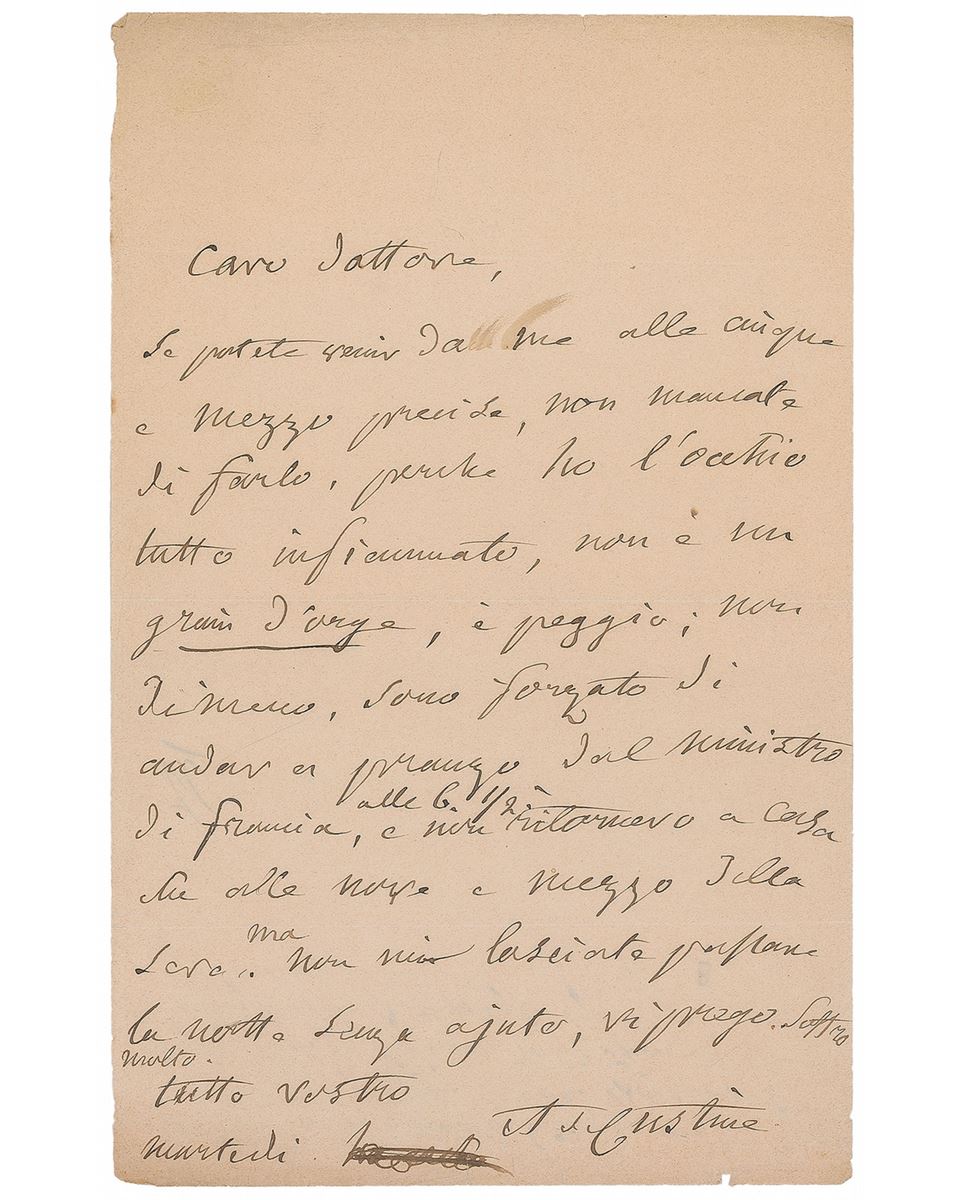 Caro Dottore,
Se potete venir da me alle cinque
e mezzo precise, non mancate
di farlo, perche ho l'occhio
tutto infiammato, non è un
grain d'orge, è peggio; non
dimeno, sono forzato di
andar a pranzo dal ministro
alle 6 1/2
di francia, e non ritornero a casa
che alle nove e mezzo della
ma
sera, non mi lasciate passare
la notte senza ajuto, vi prego. Soffro
molto.
tutto vostro
A de Custine
martedi